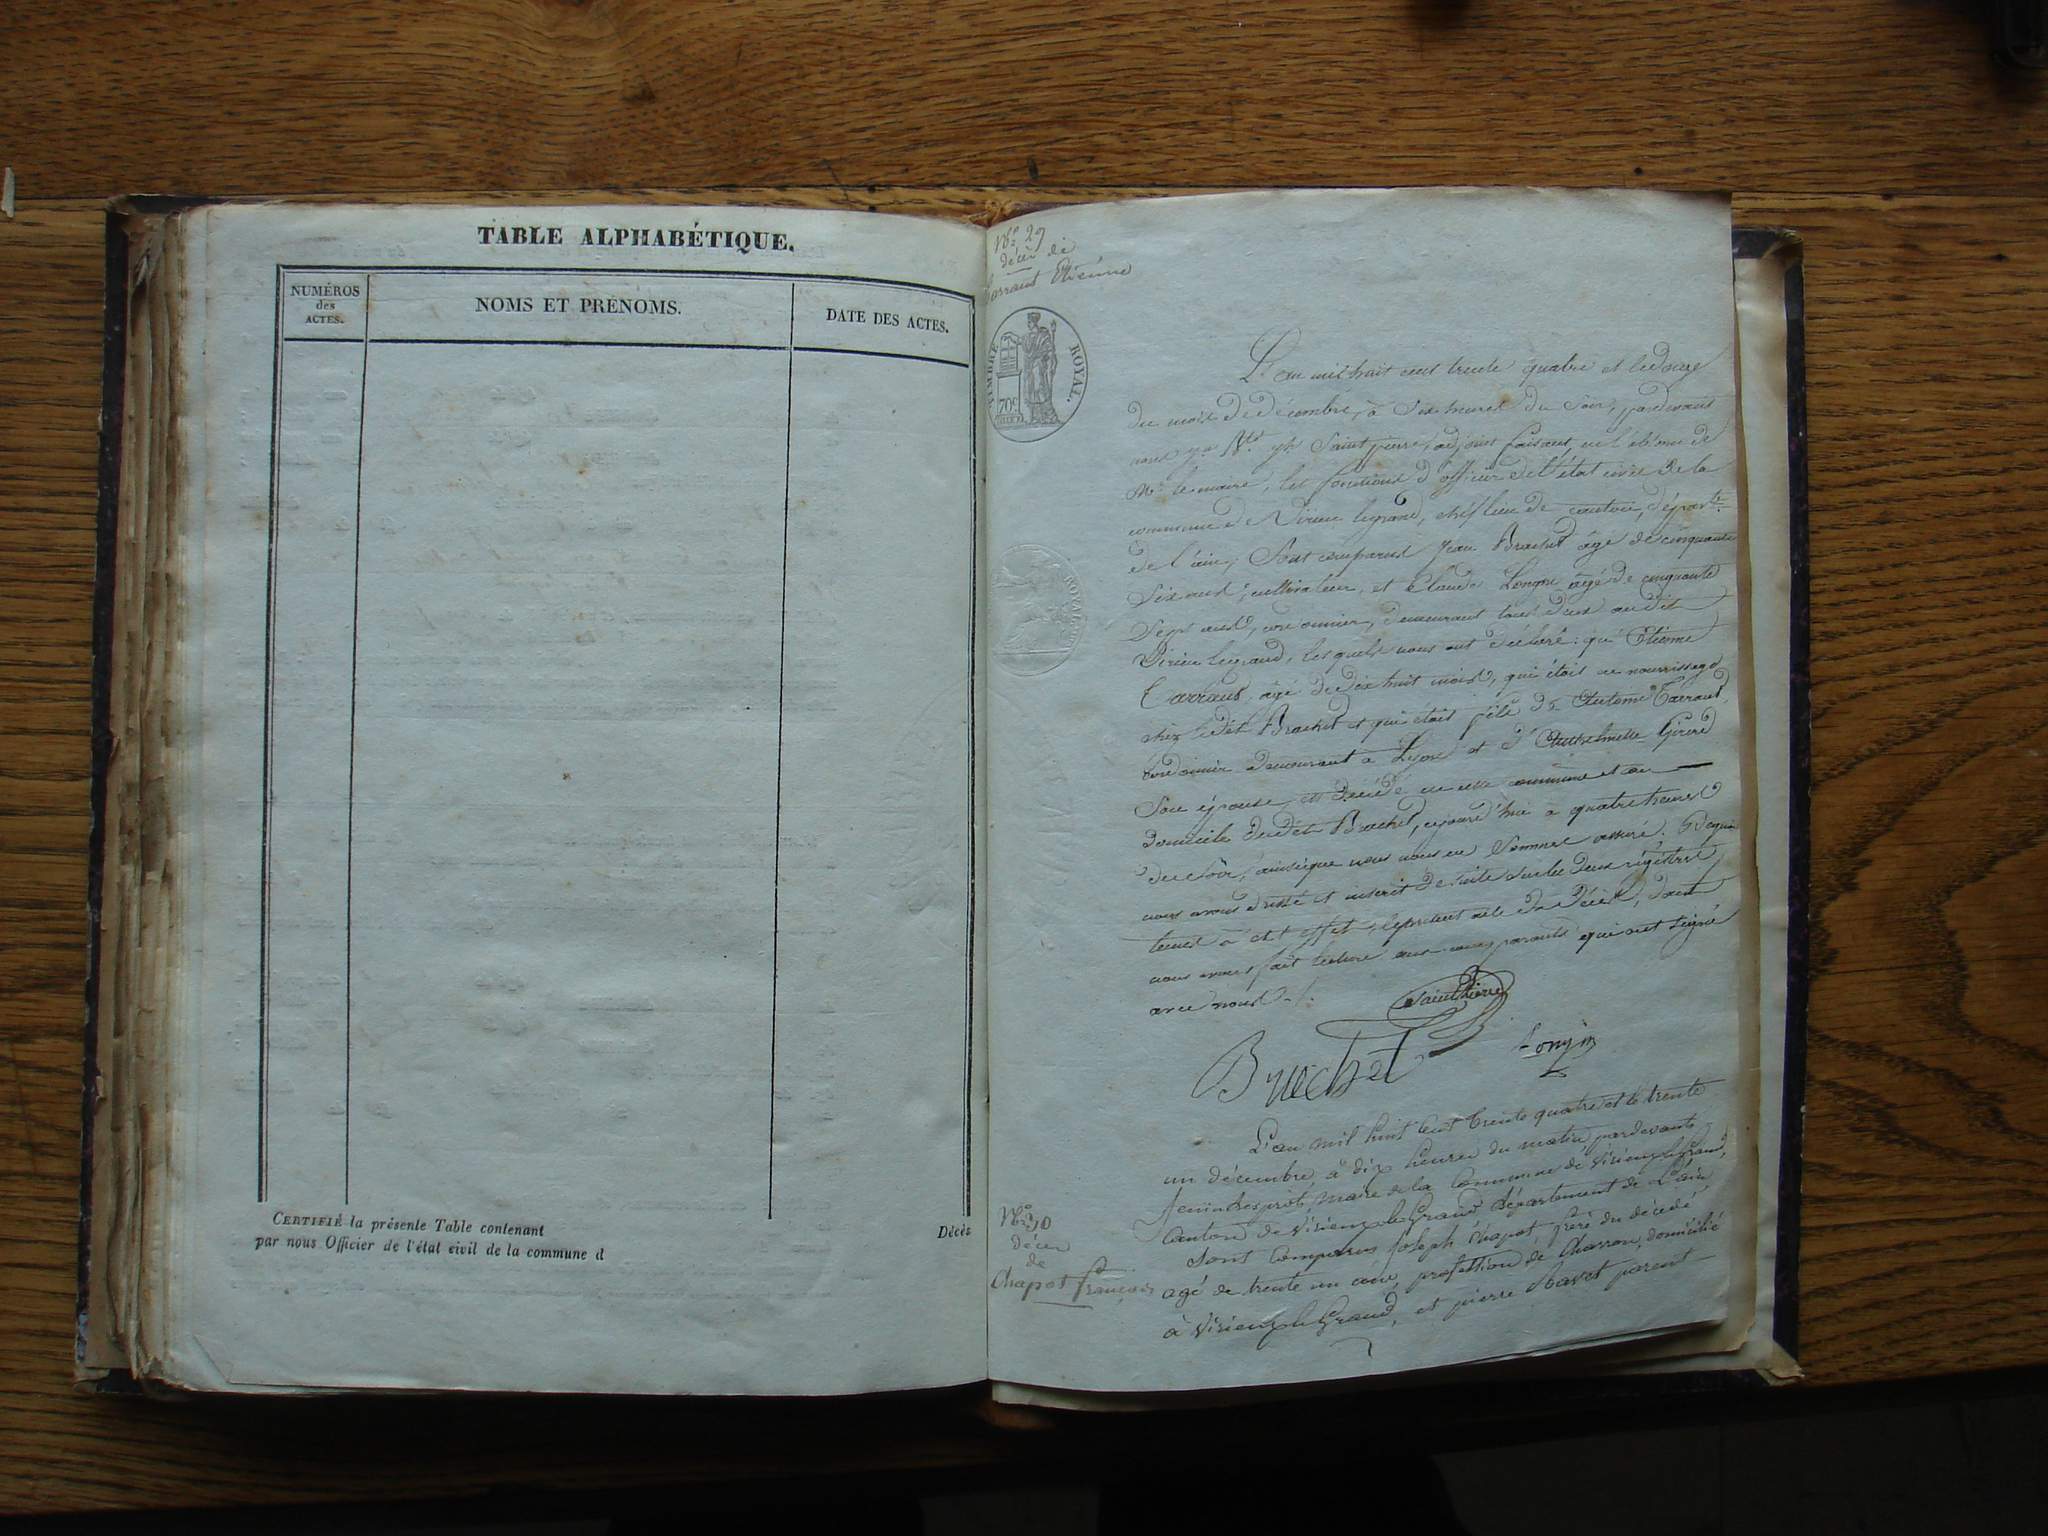 TABLE ALPHABÉTIQUE.
NUMÉROS
des
ACTES.
NOMS ET PRÉNOMS.
DATE DES ACTES.
CERTIFIÉ la présente Table contenant
Décès
par nous Officier de l'état civil de la commune d
N° 29
décès de
Etienne
TIMBRE ROYAL.
70c
L'an mil huit cent trente quatre et le douze
du mois de décembre, à six heures du soir, pardevant
nous Saint pierre, adjoint faisant, en l'absence de
Mr le maire, les fonctions d'officier de l'état civil de la
commune de Virieu legrand, chef lieu de canton, départt
de l'ain, Sont comparus Jean Brachet âgé de cinquante
Six ans, cultivateur, et Claude Longin âgé de cinquante
Sept ans, cordonnier, demeurant tous deux audit
Virieu legrand, lesquels nous ont déclaré : qu'Etienne
âgé de dix huit mois, qui était en nourrissage
chez ledit Brachet et qui était fils d'Antoine
Cordonnier demeurant à Lyon et d'Anthelmette
Son épouse, est décédé en cette commune et au
domicile dudit Brachet, ce jourd'hui à quatre heures
du Soir, ainsi que nous nous en Sommes assuré. De quoi
nous avons dressé et inscrit de suite sur les deux régistres
tenus à cet effet, le présent acte de décès, dont
nous avons fait lecture aux comparants qui ont signé
avec nous ./.
Saintpierre
Brachet
Longin
L'an mil huit cent trente quatre et le trente
un décembre, à dix heures du matin pardevant
maire de la Commune de Virieu le Grand,
Canton de Virieu le Grand Département de L'ain
Sont Comparus Joseph Chapot, frère du décédé
agé de trente un ans, profession de Charron, domicilié
à Virieu le Grand, et pierre Ravet parent
N° 30
décès
de
Chapot françois